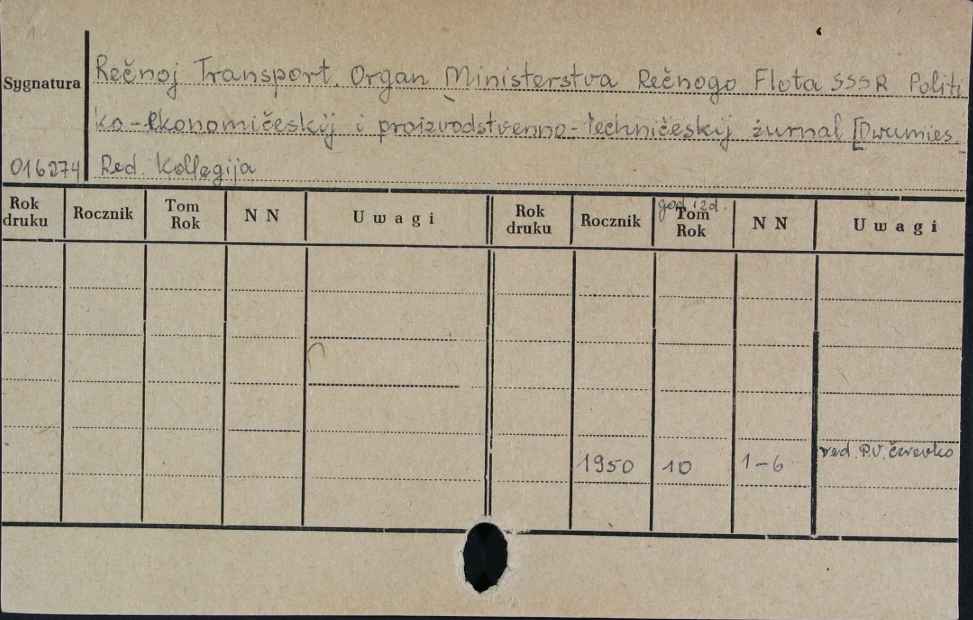 Sygnatura
Rečnoj Transport. Organ Ministerstva Rečnogo Flota SSSR Politi
ko-ekonomičeskij i proizvodstvenno-techničeskij žurnal [Dwumies.
016274 Red. Kollegija
Rok druku Rocznik Tom Rok N N Uwagi Rok druku Rocznik god izd. Tom Rok N N Uwagi
1950 10 1-6 red. P.V. Čerevko